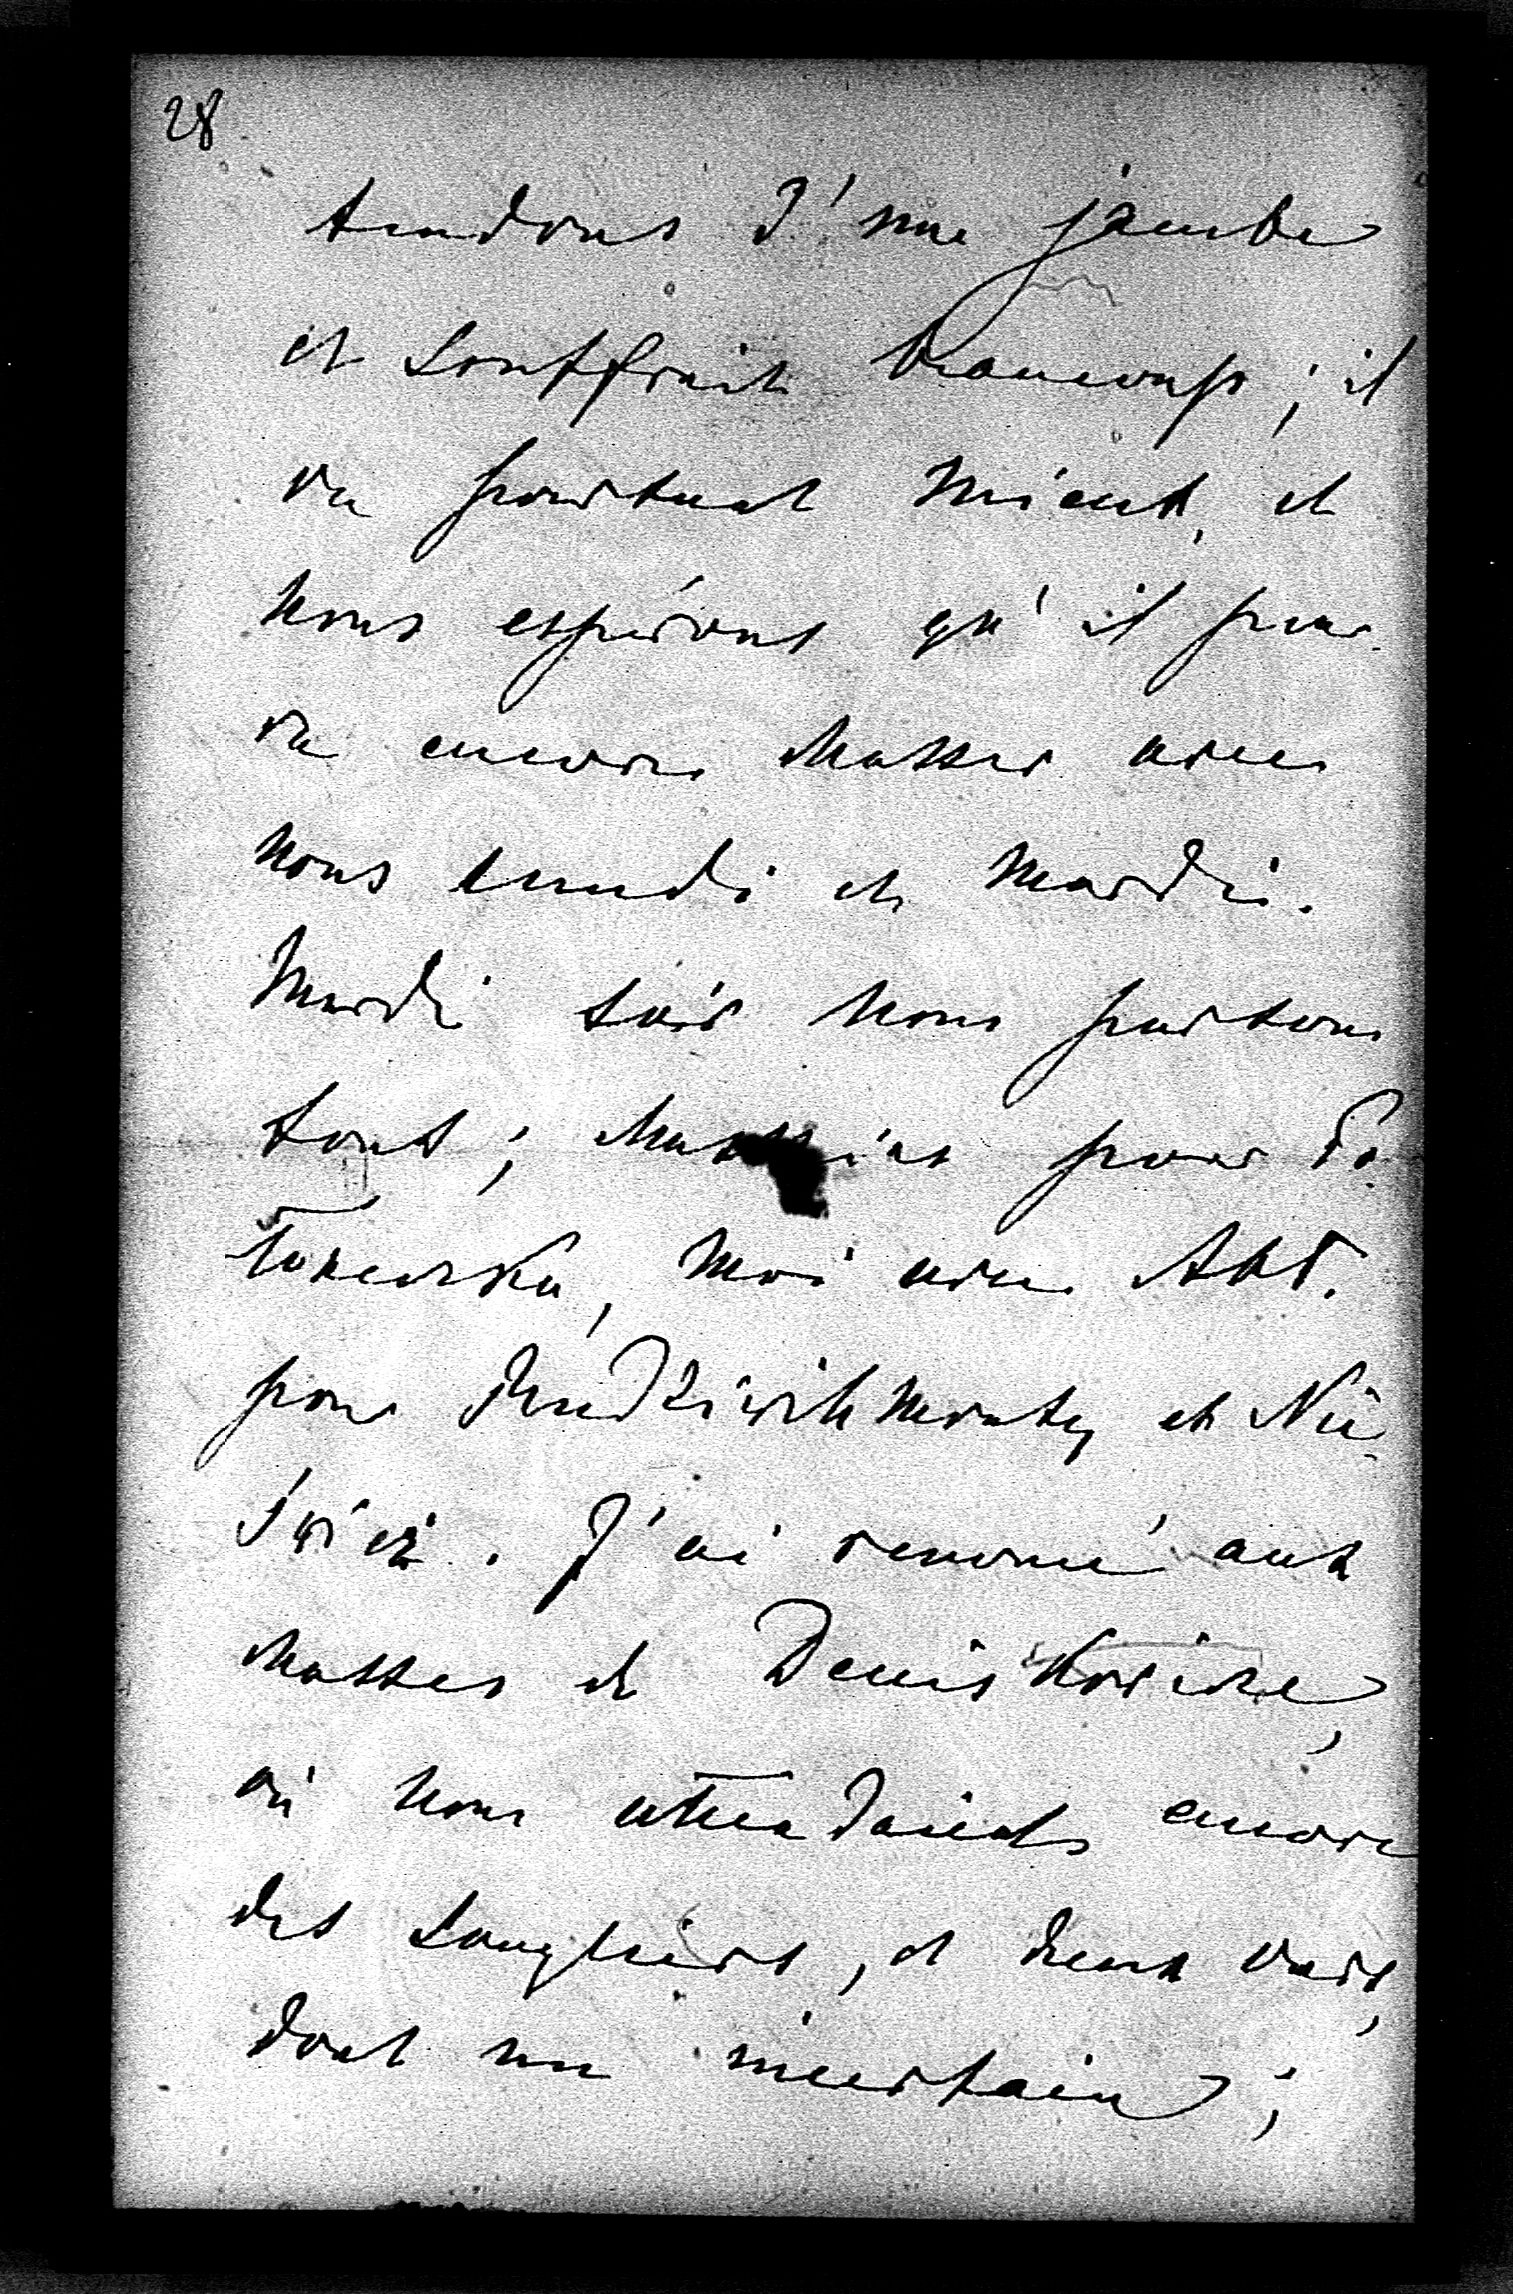 28
tendons d'une jambe
et souffrait beaucoup ; il
va pourtant mieux, et
nous espérons qu'il pour-
ra encore chasser avec
nous lundi et mardi.
Mardi soir nous partons
tous ; pour Po-
moi avec Abt.
pour et Nie-
świeź. J'ai renoncé aux
chasses de Deniskowicze,
où nous attendaients encore
des sangliers, et deux ours,
dont un incertain ;